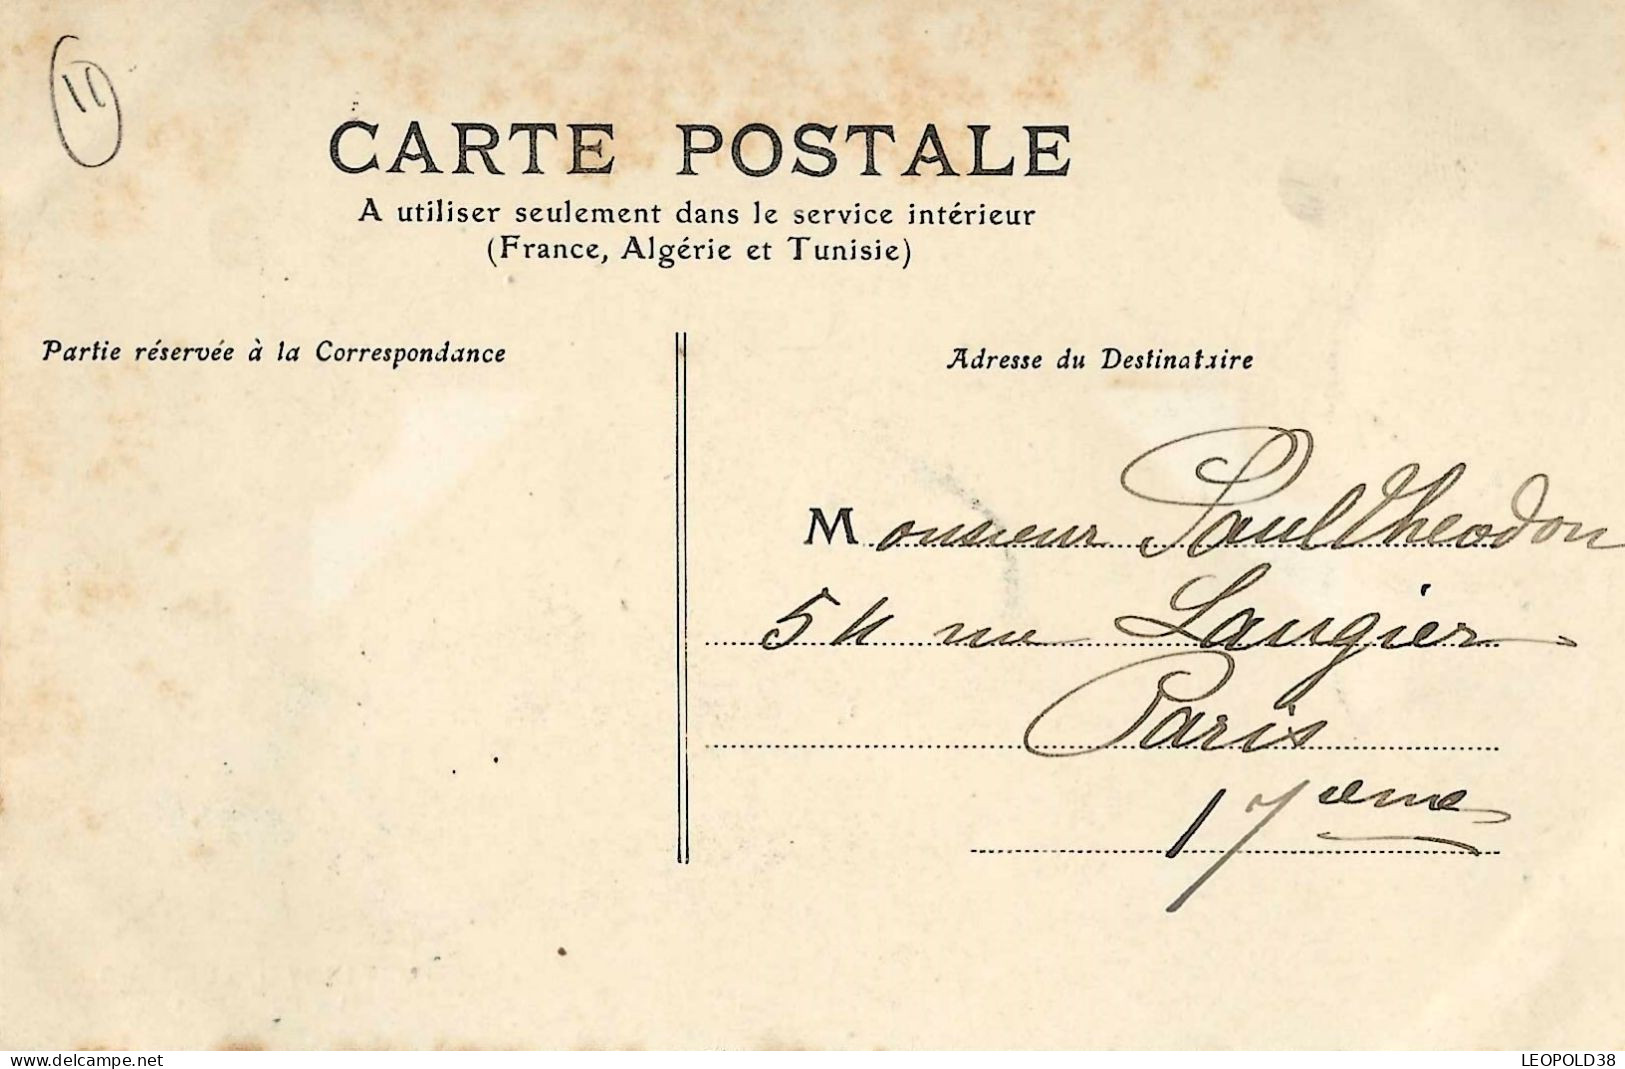 11
CARTE POSTALE
A utiliser seulement dans le service intérieur
(France, Algérie et Tunisie)
Partie réservée à la Correspondance
Adresse du Destinataire
Monsieur Paul Theodon
54 rue Laugier
Paris
17eme
www.delcampe.net
LEOPOLD38